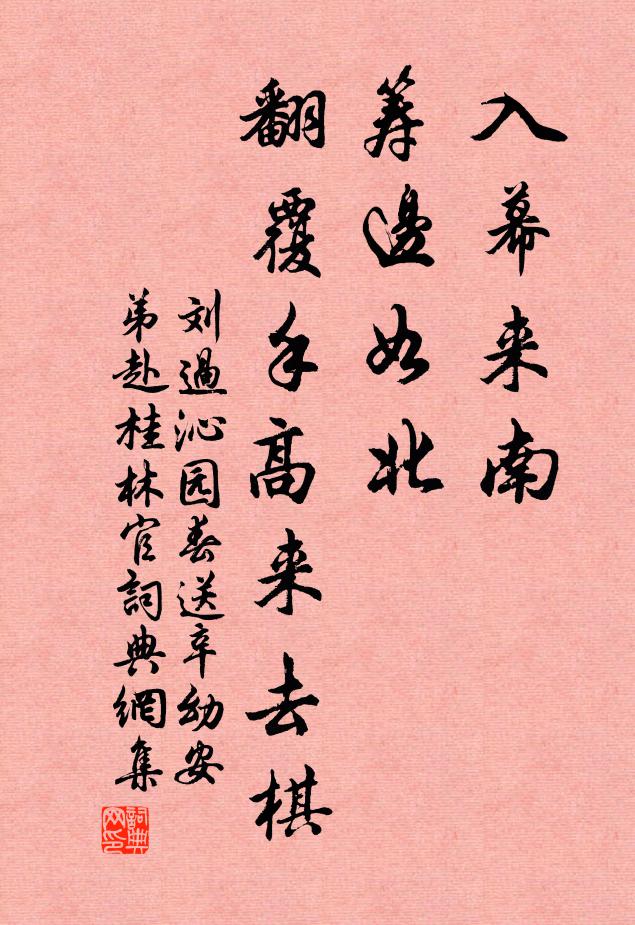 入幕来南
筹邊如北
翻覆手高来去棋
刘過沁园春送辛幼安
弟赴桂林官詞典網集
詞典
网印